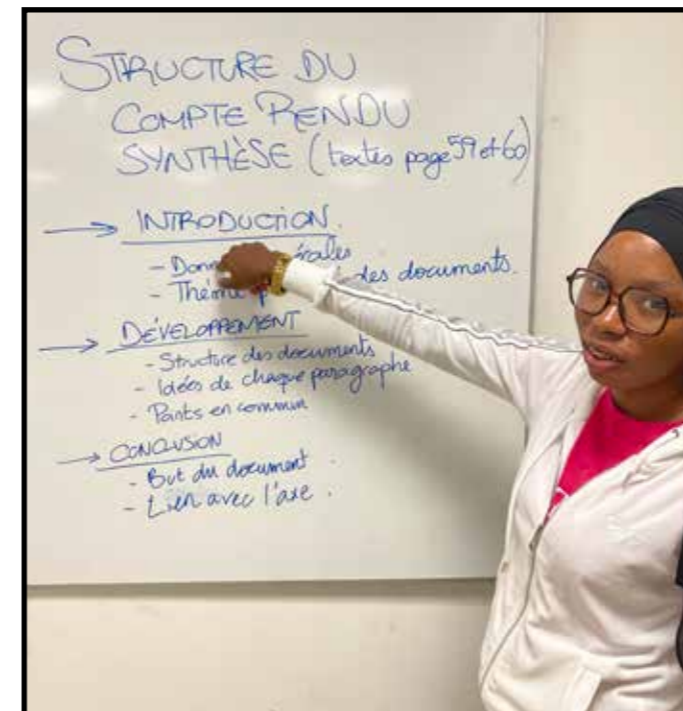 STRUCTURE DU
COMPTE RENDU
SYNTHÈSE (textes page 59 et 60)
→ INTRODUCTION.
- Données générales
- Thème des documents.
→ DÉVELOPPEMENT
- Structure des documents
- Idées de chaque paragraphe
- Points en commun
→ CONCLUSION
- But du document.
- Lien avec l'axe.